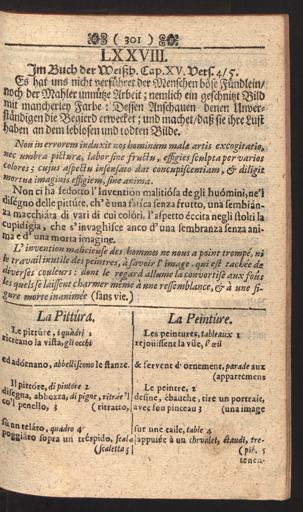 ( 301 )
LXXVIII.
Im Buch der Weißh. Cap. XV. Vers. 4/5.
Es hat uns nicht verführet der Menschen böse Fündlein/
noch der Mahler unnütze Arbeit; nemlich ein geschnitzt Bild
mit mancherley Farbe: Dessen Anschauen denen Unver-
ständigen die Begierd erwecket; und machet/daß sie ihre Lust
haben an dem leblosen und todten Bilde.
Non in errorem induxit nos hominum malæ artis excogitatio,
nec umbra picturæ, labor sine fructu, effigies sculpta per varios
colores; cujus aspectus insensato dat concupiscentiam, & diligit
mortuæ imaginis effigiem, sine anima.
Non ci hà sedotto l'Invention malitiósa de gli huómini, ne'l
diségno delle pittúre, ch'è una fatíca senza frutto, una sembián-
za macchiáta di vari di cui colóri. l'aspetto éccita negli stoli la
cupidígia, che s'invaghísce anco d'una sembranza senz'ani-
ma e d'una morta imagine.
L'invention malicieuse des hommes ne nous a point trompé, ni
le travail inutile des peintres, à sçavoir l'image, qui est tachée de
diverses couleurs: dont le regard allume la convertise aux fous
les quels se laissent charmer même à une ressemblance, & à une fi-
gure morte inanimée (sans vie.)
La Pittúra.
Le pittúre, i quádri 1
ricreano la vista, gli occhi
ed adórnano, abbelliscono le stanze.
Il pittóre, di pintore 2
disegna, abbozza, di pigne, ritráe'l
co'l penello, 3 (ritratto,
su un teláto, quadro 4
poggiáto sopra un tréspido, scala
(scaletta 5
La Peinture.
Les peintures, tableaux 1
rejouissent la vüe, l'œil
& servent d'ornement, parade aux
(appartemens
Le peintre, 2
desine, ébauche, tire un portrait,
avec son pinceau 3 (una image
sur une taile, table 4
appuiée à un chevalet, étaudi, tre-
(pié. 5